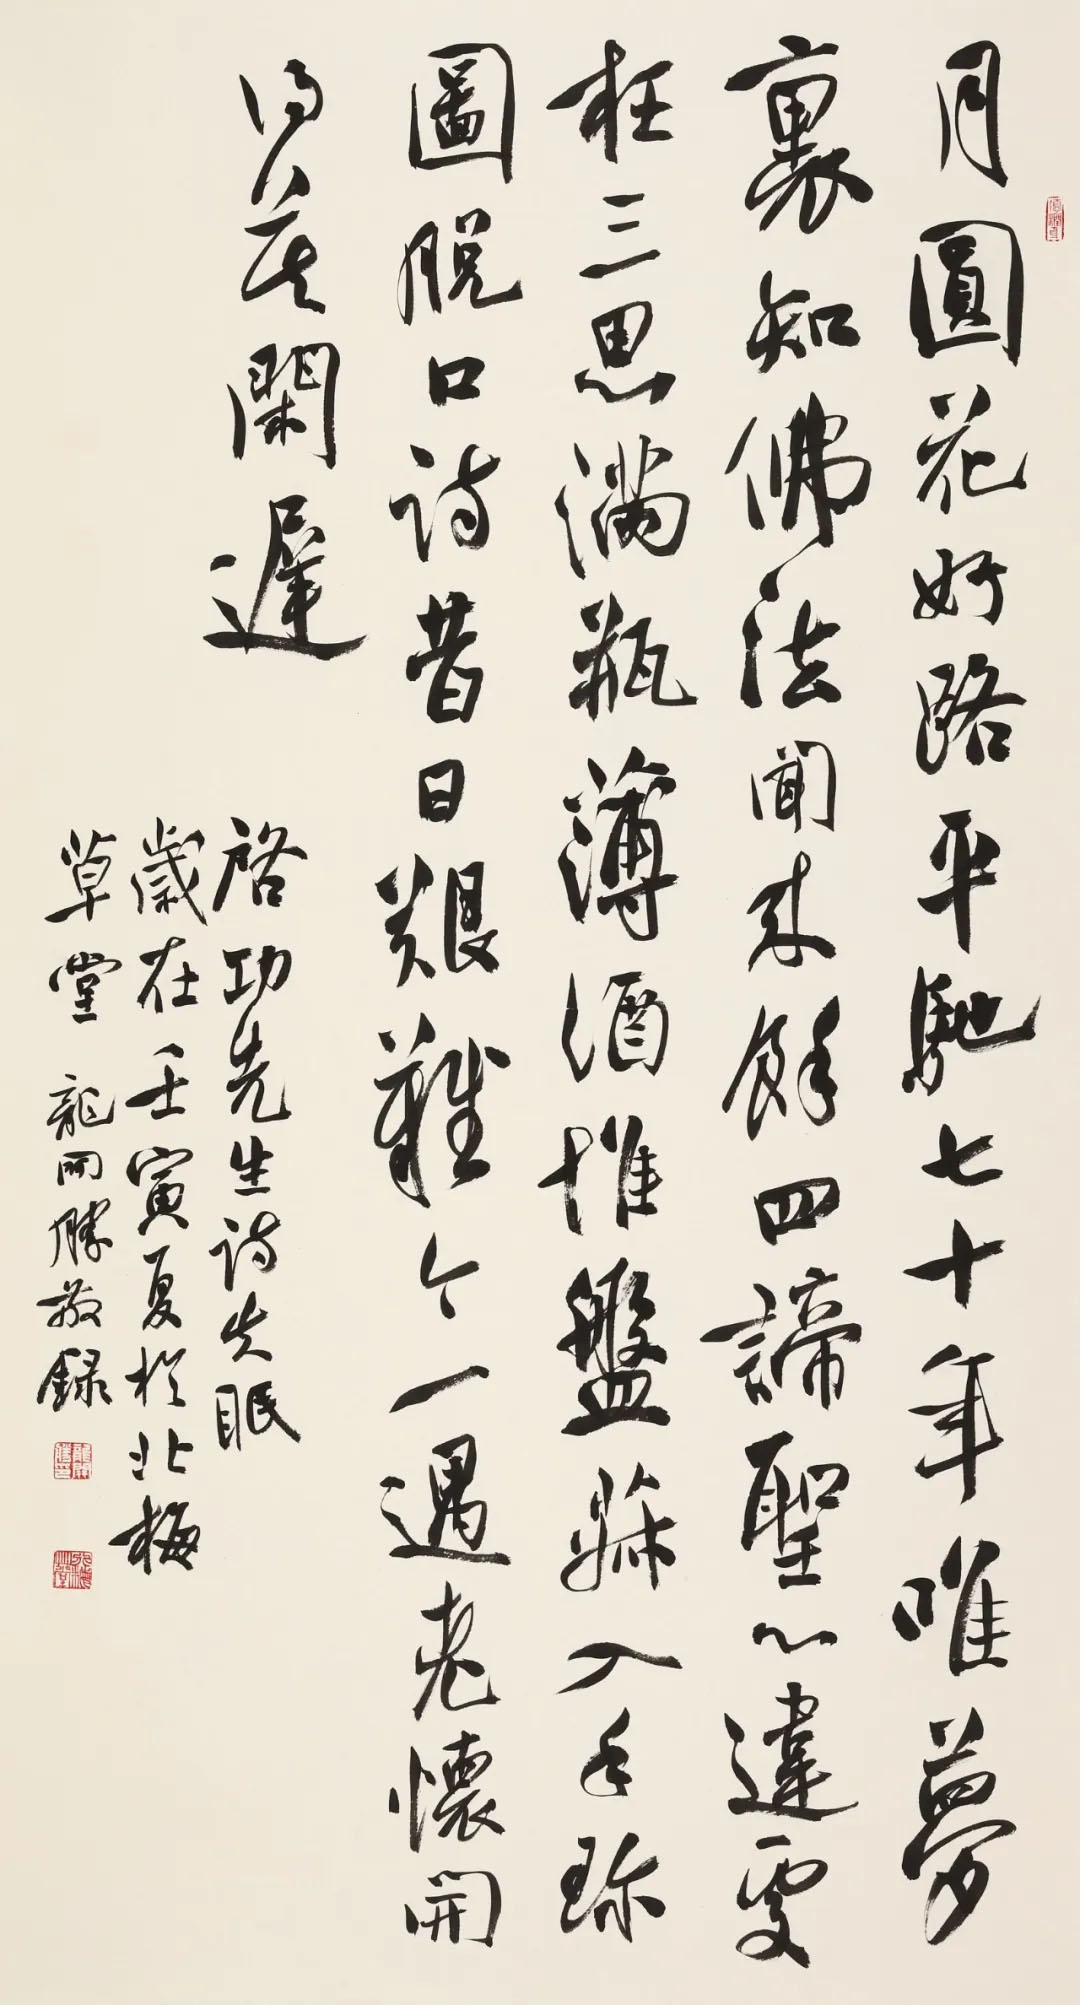 月圓花好路平馳七十年唯夢
裏知佛法聞來餘四諦聖心違處
枉三思滿瓶薄酒堆盤菽入手珍
圖脫口詩昔日艱難今一遇老懷開
得莫閑遲
啓功先生詩失眠
歲在壬寅夏於北梅
草堂 龍開勝敬錄